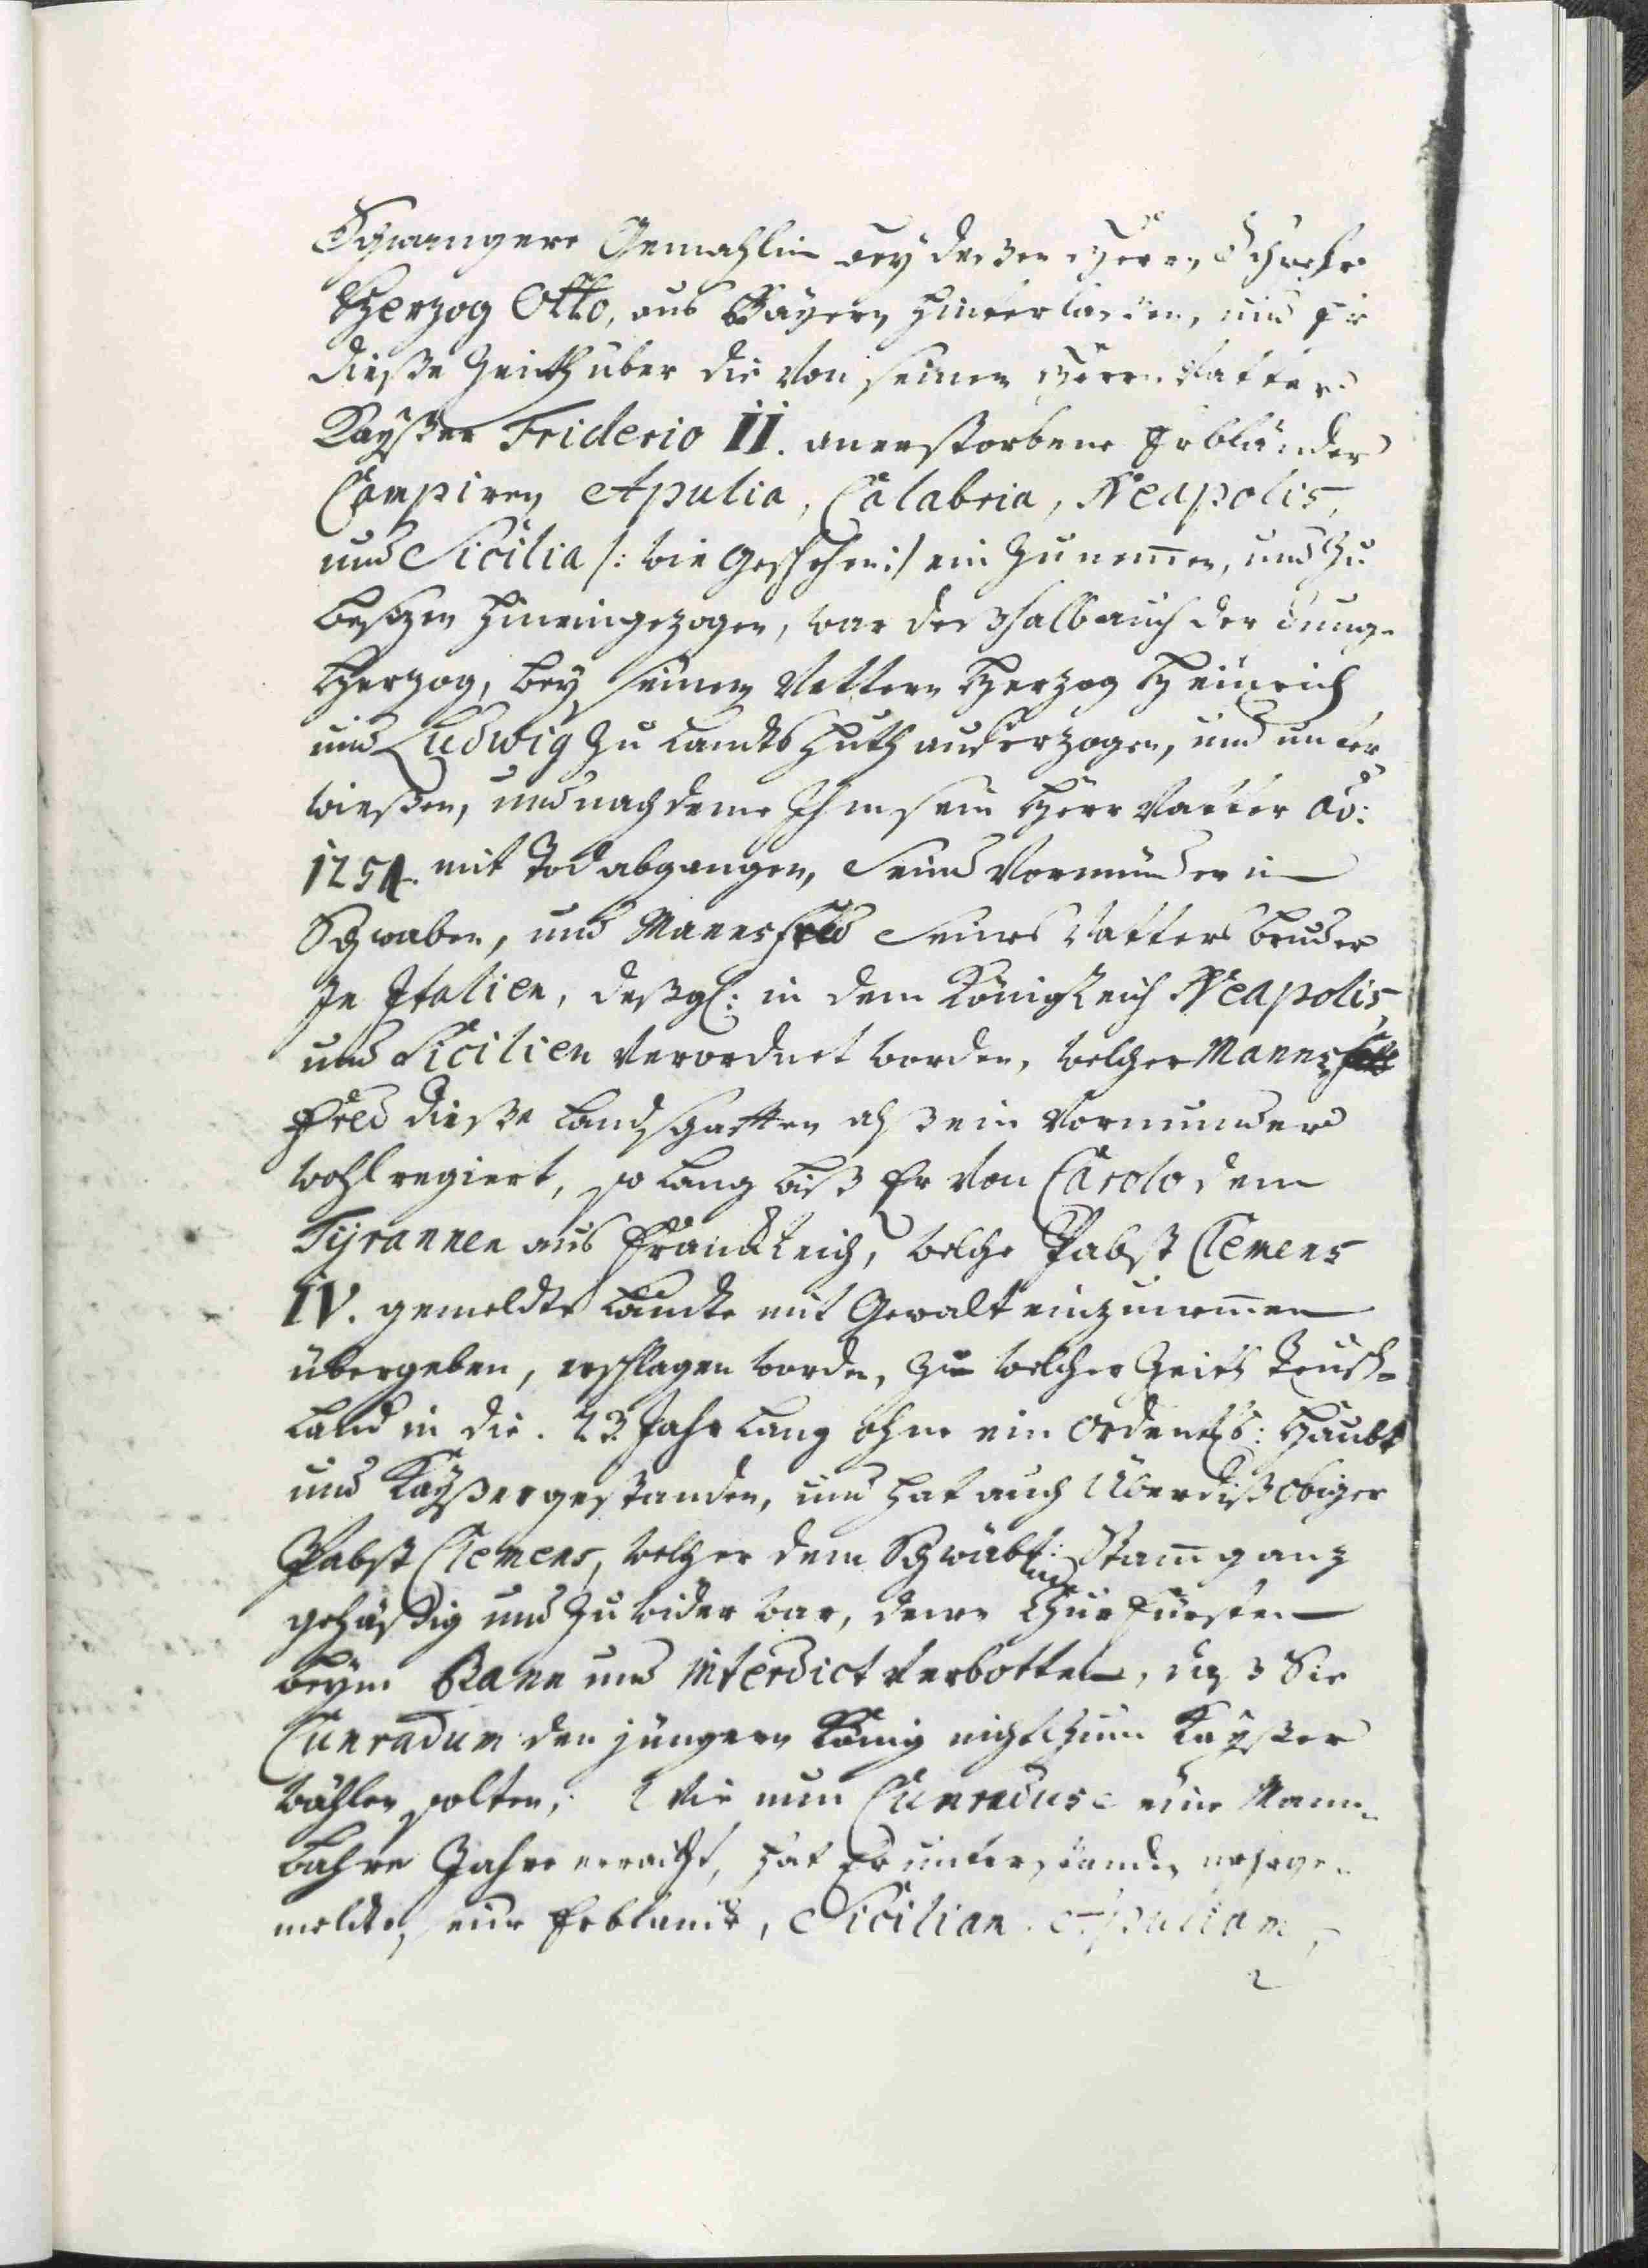 Schwangere Gemahlin bey deßen Herrn Schweher
Herzog Otto, aus Bayern hinterlaßen, und Er
dieße Zeith über die Von seinem Herrn Vatter
Kayßer Friderio II. anerstorbene Erbländer
Campiren Apulia, Calabria, Neapolis,
und Sicilia /: wie geschehen :/ ein Zunemen, und Zu
besizen hineingezogen, war deßhalb auch der Jung
Herzog, bey seinen Vettern Herzog Heinrich
und Ludwig Zu Landtshuth auferzogen, und unter
wießen, und nach deme Ihm sein Herr Vatter Ao:
1254. mit Tod abgangen, Seind Vormünder in
Schwaben, und Mannsfred Seines Vatters Bruder
In Italien, deßgl: in dem Königreich Neapolis,
und Sicilien Verordnet worden, welcher Manns
fred dieße Landschafften alß ein Vormunder
wohl regiert, so lang biß Er Von Carolo dem
Tyrannen aus Franckreich, welche Pabst Clemens
IV. gemeldte Landte mit Gewalt einzunemen
übergeben, erschlagen worden, Zu welcher Zeith Teusch-
Land in die 23 Jahr Lang ohne ein ordentl: Haubt
und Kayßer gestanden, und hat auch Überdiß obiger
Pabst Clemens, welcher dem Schwäb: Stam ganz
gehäßig und Zuwider war, denen ChurFürsten
beym Bann und Interdict Verbotten, daß Sie
Cunradum den jüngern König nicht Zum Kayßer
wählen solten; Wie nun Cunradus eine Mann-
bahre Jahre erreicht, hat Er unterstanden ersage-
melte, seine Erblande, Sicilian. Apuliam,